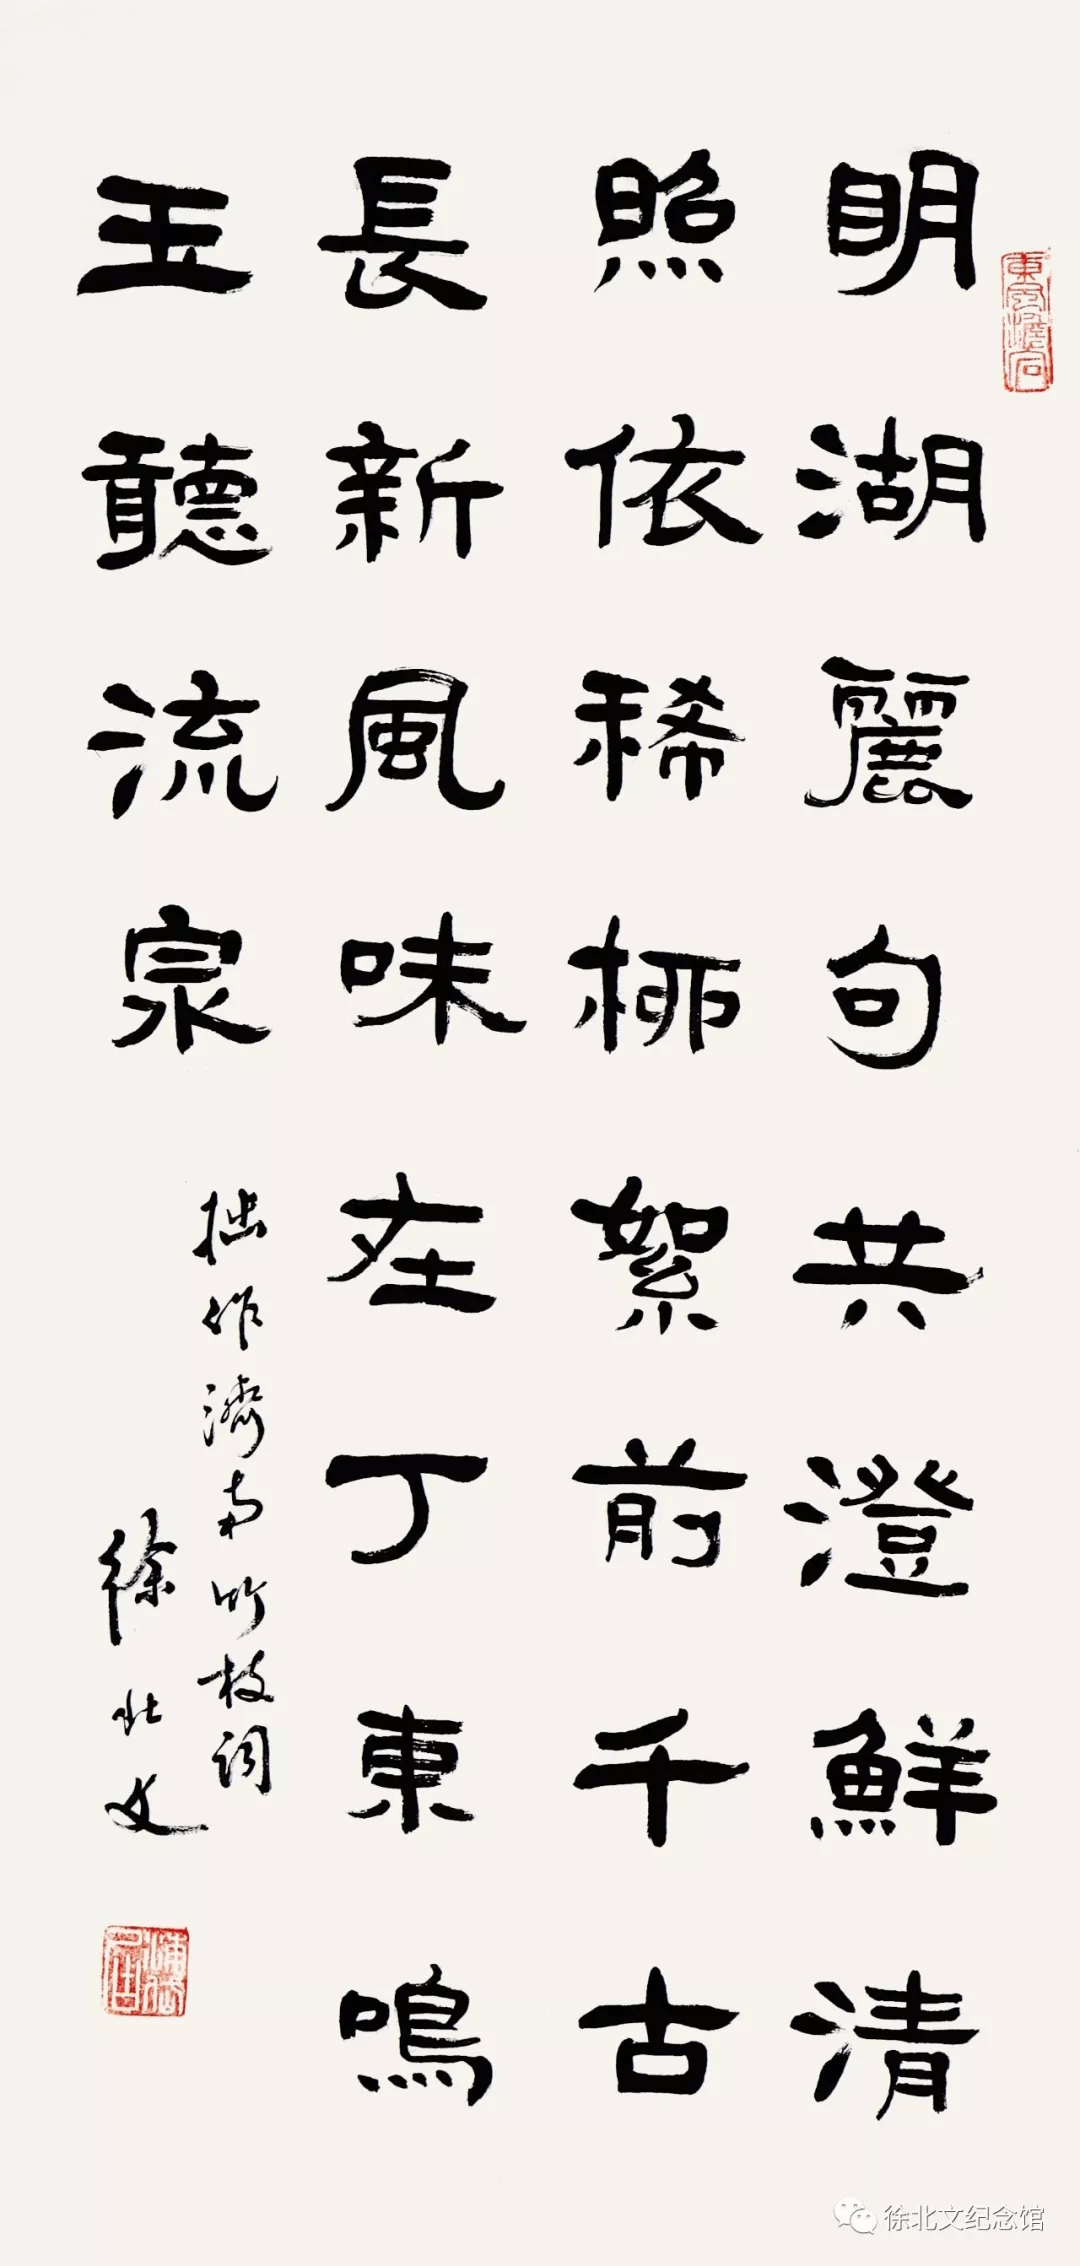 明湖麗句共澄鮮清
照依稀柳絮前千古
長新風味在丁東鳴
玉聽流泉
拙作濟南竹枝詞
徐北文
徐北文纪念馆